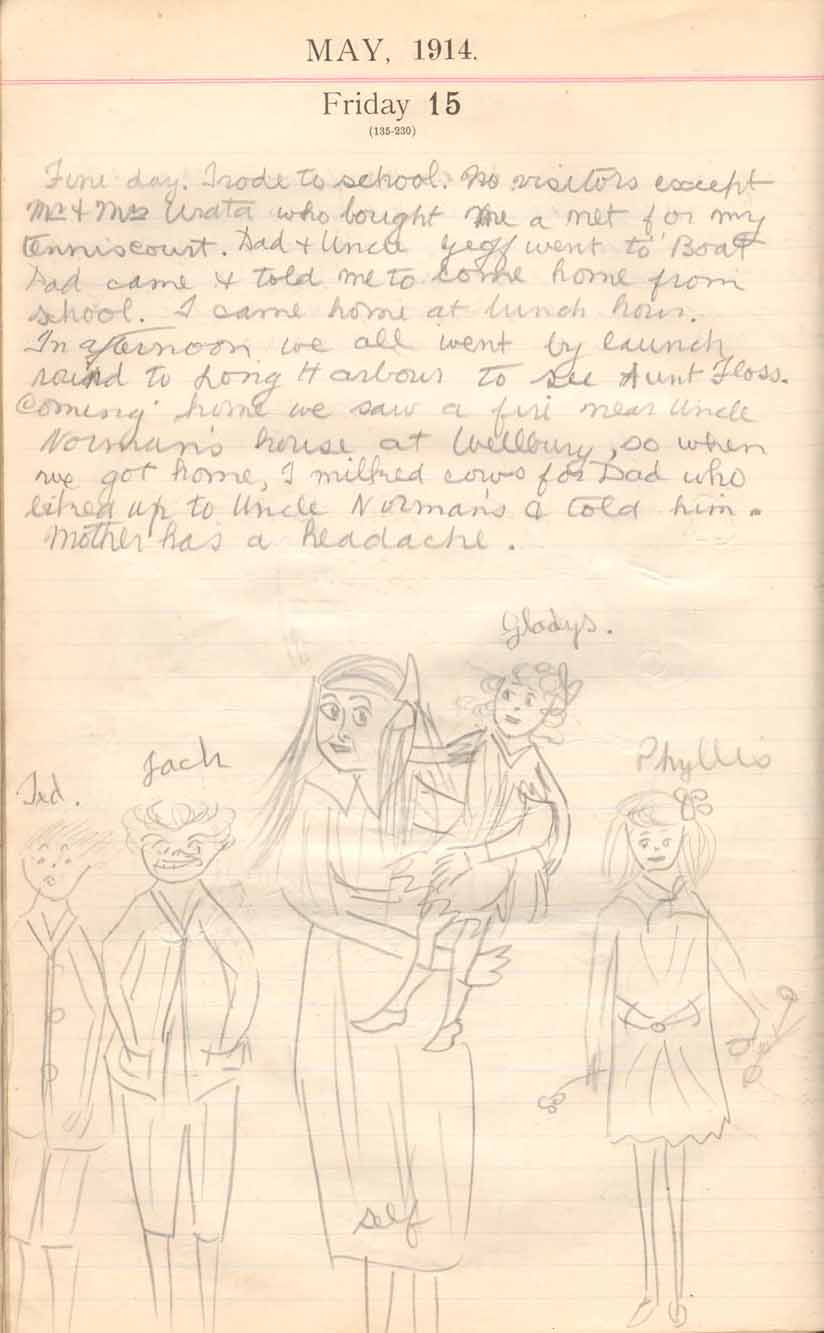 MAY, 1914.
Friday 15
(135-230)
Fine day. I rode to school. No visitors except
Mr & Mrs Urata who bought me a net for my
tenniscourt. Dad & Uncle Geoff went to Boat
Dad came & told me to come home from
school. I came home at lunch hour.
In afternoon we all went by launch
round to Long Harbour to see Aunt Floss.
Coming home we saw a fire near Uncle
Norman's house at Wellbury, so when
we got home, I milked cows for Dad who
up to Uncle Norman's & told him.
Mother has a headache.
Gladys.
Jack
Phyllis
Ted.
self